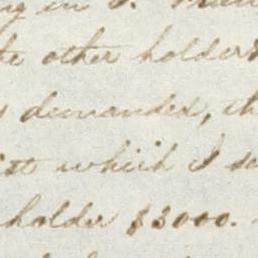 ing in
the other holders
demanded, th
which I s
holder $3000.